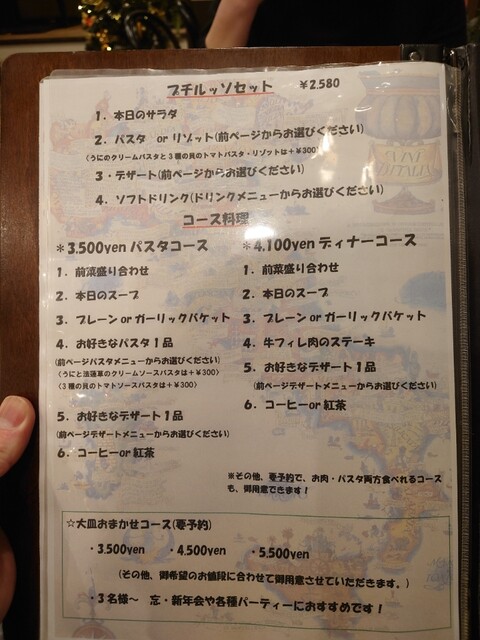 プチルッソセット ￥2.580
1. 本日のサラダ
2. パスタ or リゾット(前ページからお選びください)
(うにのクリームパスタと3種の貝のトマトパスタ・リゾットは+￥300)
3・デザート(前ページからお選びください)
4. ソフトドリンク(ドリンクメニューからお選びください)
コース料理
＊3.500yen パスタコース
1. 前菜盛り合わせ
2. 本日のスープ
3. プレーン or ガーリックバケット
4. お好きなパスタ1品
(前ページパスタメニューからお選びください)
(うにと法蓮草のクリームソースパスタは+￥300)
(3種の貝のトマトソースパスタは+￥300)
5. お好きなデザート1品
(前ページデザートメニューからお選びください)
6. コーヒー or 紅茶
＊4.100yen ディナーコース
1. 前菜盛り合わせ
2. 本日のスープ
3. プレーン or ガーリックバケット
4. 牛フィレ肉のステーキ
5. お好きなデザート1品
(前ページデザートメニューからお選びください)
6. コーヒー or 紅茶
※その他、要予約で、お肉・パスタ両方食べれるコース
も、御用意できます！
☆大皿おまかせコース(要予約)
・3.500yen ・4.500yen ・5.500yen
(その他、御希望のお値段に合わせて御用意させていただきます。)
・3名様～ 忘・新年会や各種パーティーにおすすめです！